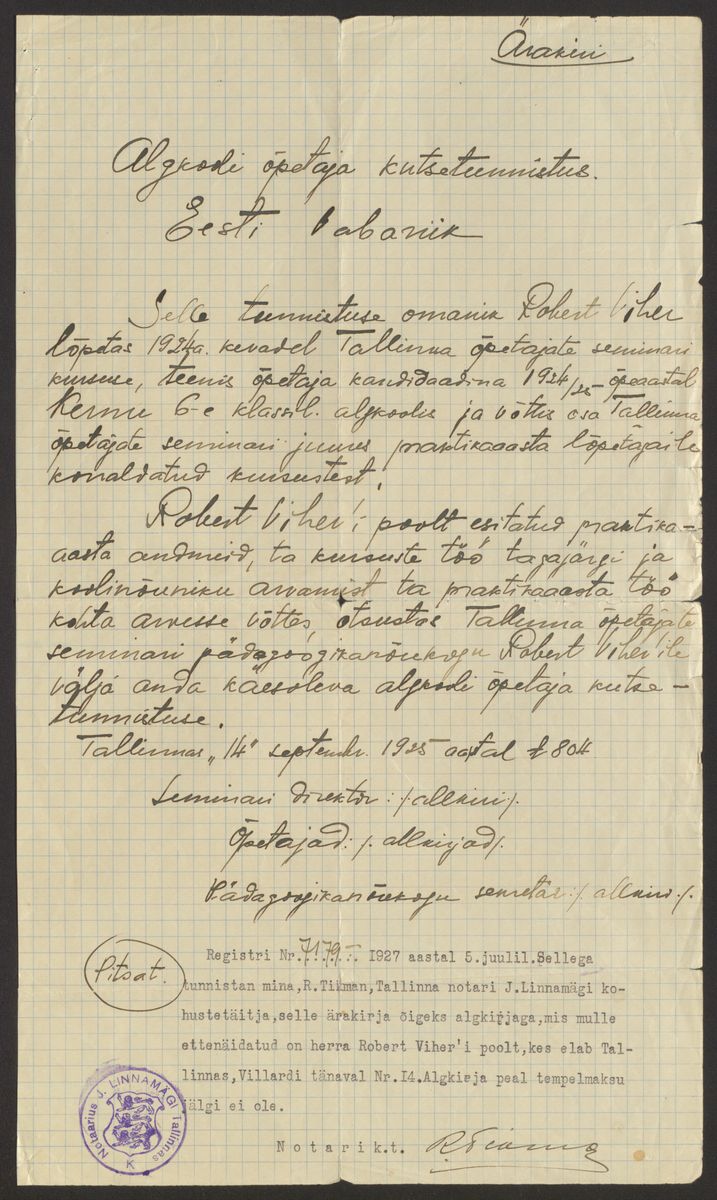 Ärakiri
Algkooli õpetaja kutsetunnistus.
Eesti Vabariik
Selle tunnistuse omanik Robert Viher
lõpetas 1924 a. kevadel Tallinna õpetajate seminari
kursuse, teenis õpetaja kandidaadina 1924/25 õpeaastal
6-e klassil. algkoolis ja võttis osa Tallinna
õpetajate seminari juures praktikaaasta lõpetajaile
korraldatud kursustest.
Robert Viher'i poolt esitatud praktika-
aasta andmeid, ta kursuste töö tagajärgi ja
koolinõuniku arvamist ta praktikaaasta töö
kohta arvesse võttes, otsustas Tallinna õpetajate
seminari pädagoogikanõukogu Robert Viher'ile
välja anda käesoleva algkooli õpetaja kutse-
tunnistuse.
Tallinnas, "14" septembr. 1925 aastal № 804
Seminari direktor: /allkiri/.
Õpetajad: /. allkirjad/.
Pädagoogikanõukogu sekretär: /. allkiri /.
Pitsat.
Registri Nr.7179. I927 aastal 5.juulil.Sellega
tunnistan mina,R.Tikman,Tallinna notari J.Linnamägi ko-
hustetäitja,selle ärakirja õigeks algkirjaga,mis mulle
ettenäidatud on herra Robert Viher'i poolt,kes elab Tal-
linnas,Villardi tänaval Nr.I4.Algkirja peal tempelmaksu
jälgi ei ole.
Notari k.t.
Notaarius J. LINNAMÄGI Tallinnas
K